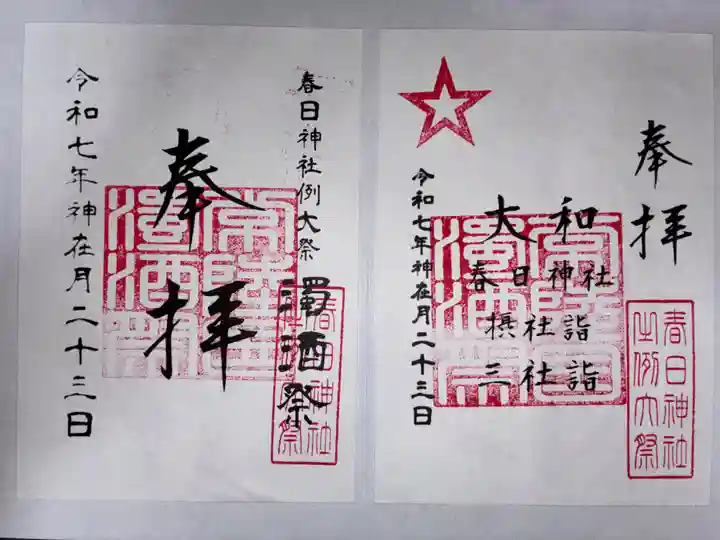 奉拝
大和
春日神社
摂社詣
三社詣
令和七年神在月二十三日
春日神社
之例大祭
春日神社例大祭
濁酒祭
奉拝
令和七年神在月二十三日
春日神社